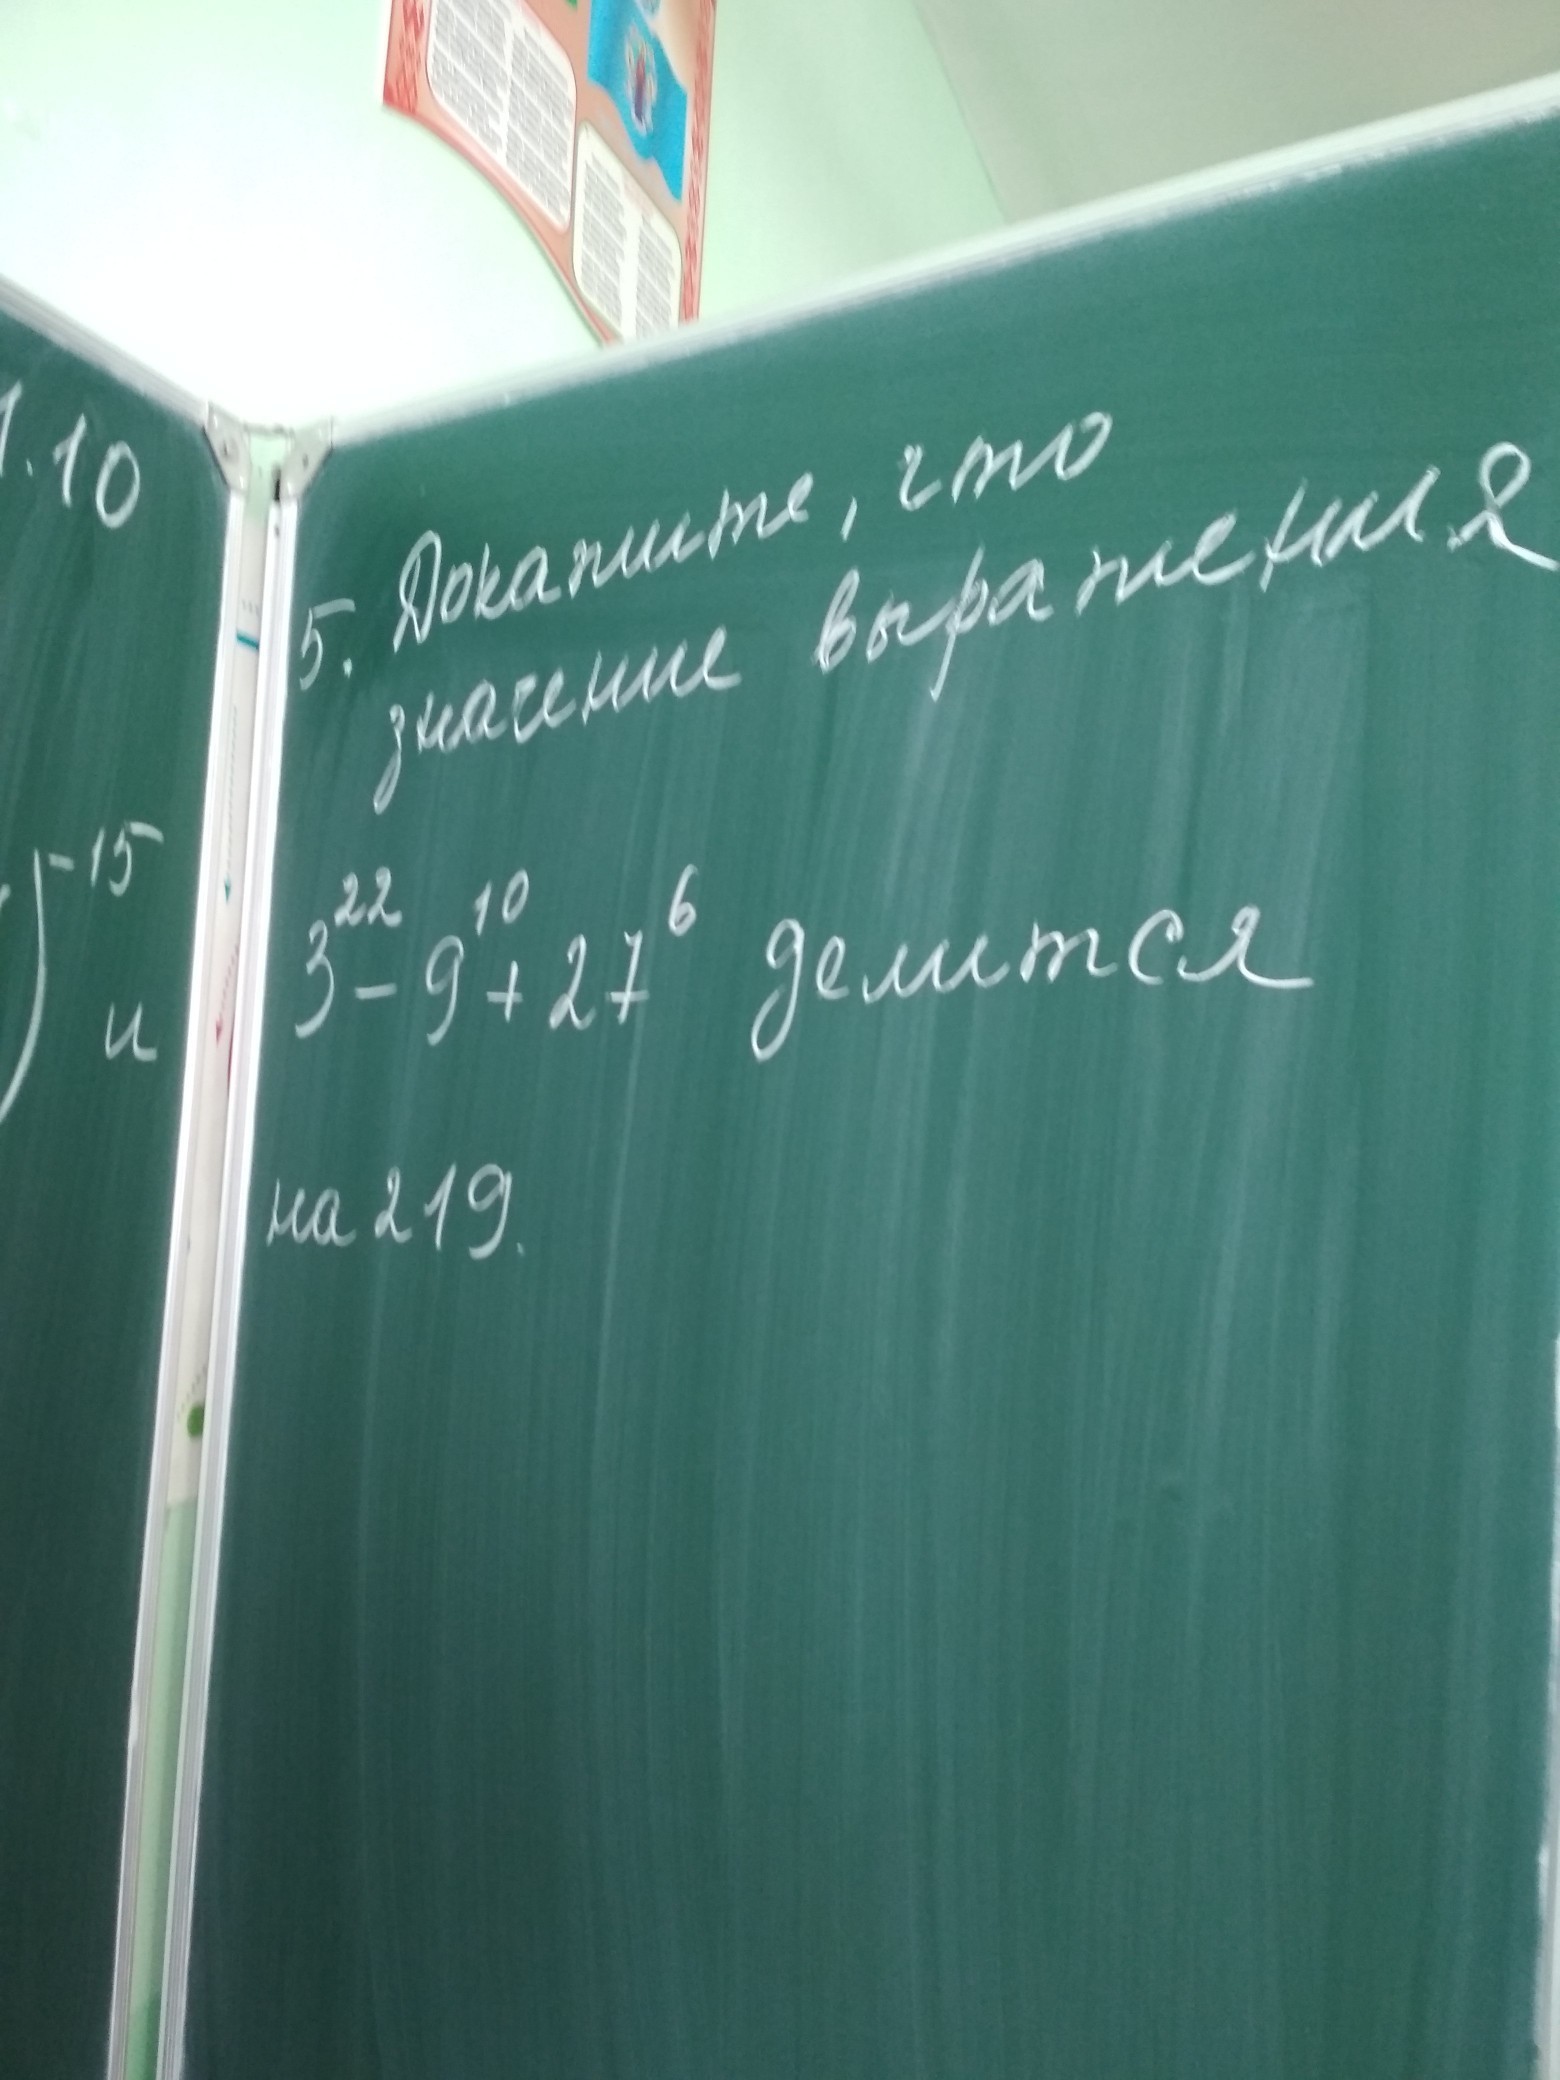 1.10
)⁻¹⁵
и
5. Докажите, что
значение выражения
3²² - 9¹⁰ + 27⁶ делится
на 219.